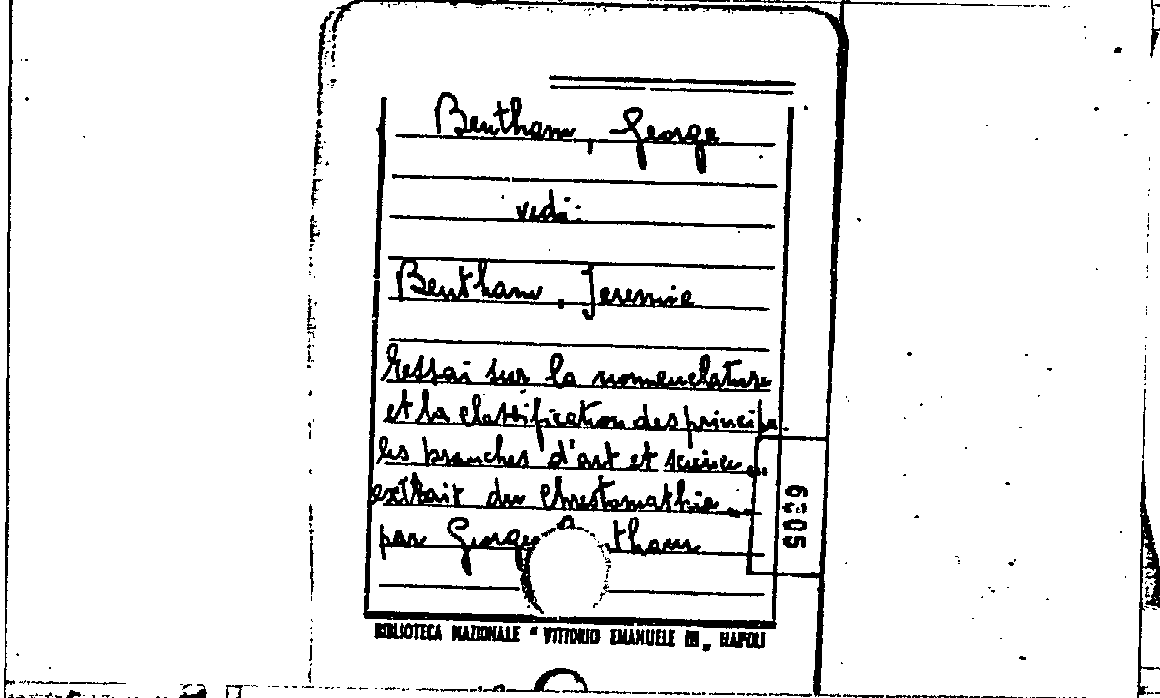 Bentham, George
vedi:
Bentham, Jeremie
Essai sur la nomenclature
et la classification des principa
les branches d'art et science
extrait du Chrestomathia
par George Bentham
BIBLIOTECA NAZIONALE "VITTORIO EMANUELE III„ NAPOLI